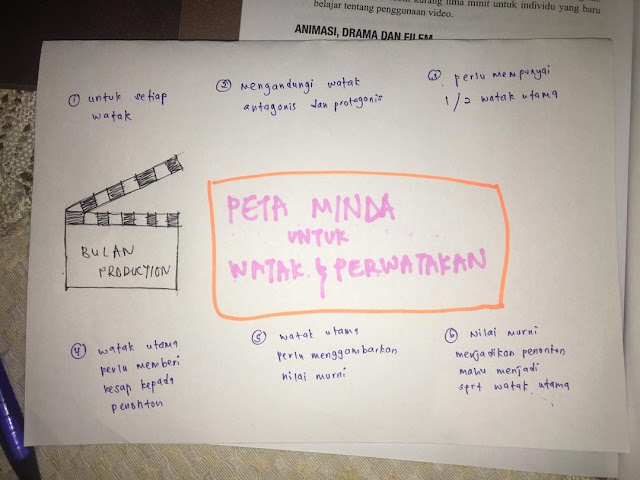 kurang lima minit untuk individu yang baru
belajar tentang penggunaan video.
ANIMASI, DRAMA DAN FILEM
① untuk setiap
watak
② mengandungi watak
antagonis dan protagonis
③ perlu mempunyai
1/2 watak utama
PETA MINDA
UNTUK
WATAK & PERWATAKAN
BULAN
PRODUCTION
④ watak utama
perlu memberi
kesap kepada
penonton
⑤ watak utama
perlu menggambarkan
nilai murni
⑥ Nilai murni
menjadikan penonton
mahu menjadi
sprt watak utama